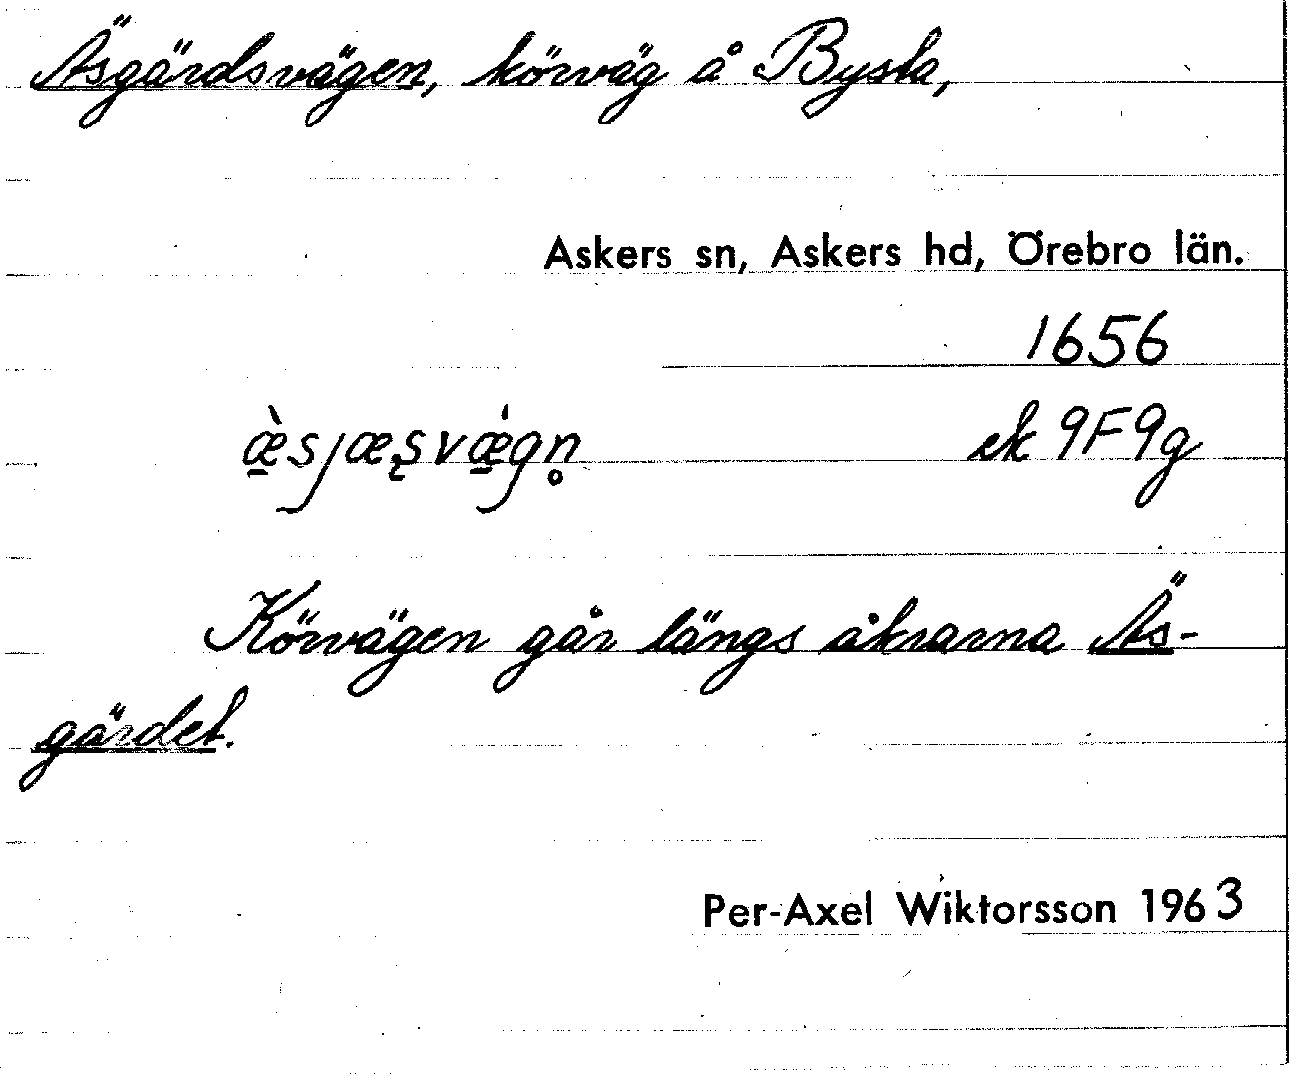 Äsgärdsvägen, körväg å Bysta,
Askers sn, Askers hd, Örebro län.
1656
æ̠̀sjæʂvǽ̠gn̥ ek 9F9g
Körvägen går längs åkrarna Äs-
gärdet.
Per-Axel Wiktorsson 1963